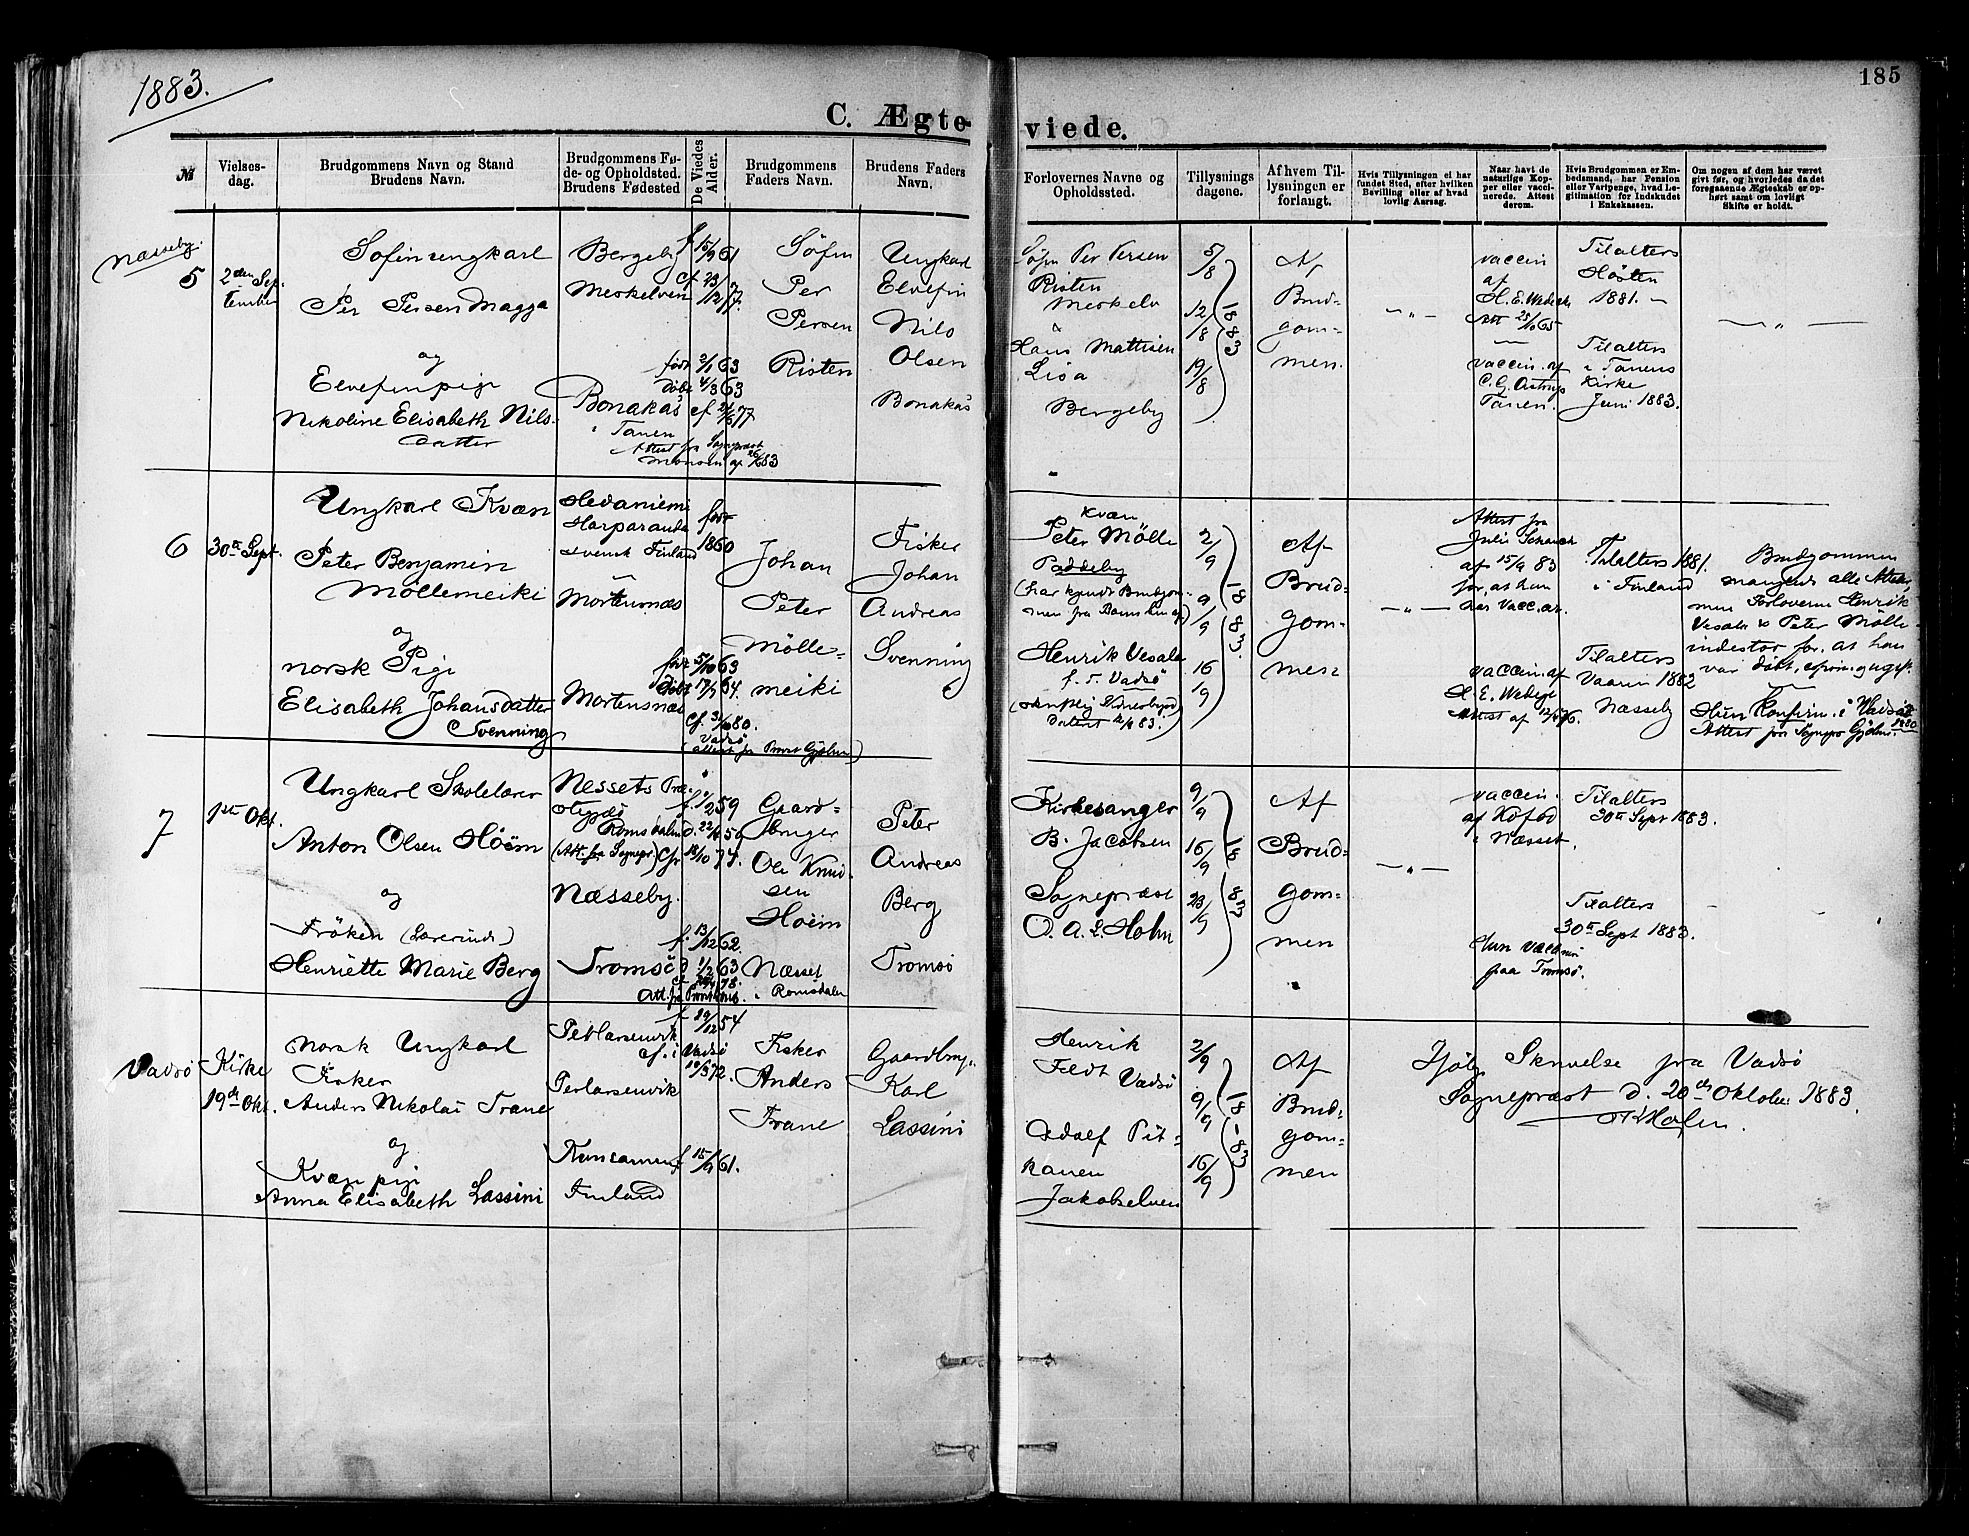 1883.
185
C. Ægteviede.
№
Vielses-
dag.
Brudgommens Navn og Stand
Brudens Navn.
Brudgommens Fø-
de- og Opholdsted.
Brudens Fødested
De Viedes
Alder.
Brudgommens
Faders Navn.
Brudens Faders
Navn.
Forlovernes Navne og
Opholdssted.
Tillysnings
dagene.
Af hvem Til-
lysningen er
forlangt.
Hvis Tillysningen ei har
fundet Sted, efter hvilken
Bevilling eller af hvad
lovlig Aarsag.
Naar havt de
naturlige Kop-
per eller vacci-
nerede. Attest
derom.
Hvis Brudgommen er Em-
bedsmand, har Pension
eller Vartpenge, hvad Le-
gitimation for Indskudet
i Enkekassen.
Om nogen af dem har været
givt før, og hvorledes da det
foregaaende Ægteskab er op-
hørt samt om lovligt
Skifte er holdt.
Næsseby.
5
2den Sep-
tember
Søfinungkarl
Per Persen Magga
og
Elvefinpige
Nikoline Elisabeth Nils-
datter
Bergeby
Meskelven
Bonakas
i Tanen
Attest fra Sognepræst
f. 15/9 61
cf. 23/12 77.
født 2/1 63
døbt 4/3 63
Søfin
Per
Persen
Risten
Ungkarl
Elvefin
Nils
Olsen
Bonakas
Søfin Per Persen
Risten
Meskelv
&
Hans Mattisen
Lisa
Bergeby
5/8
12/8
19/8
1883
Af
Brud-
gom-
men.
— „ —
vaccin
af
H. E. Wadel
Att 25/10 65
vaccin. af
C. G. Astrup
Tanen.
Tilalters
Høsten
1881. —
Tilalters
i Tanens
Kirke
Juni 1883.
— „ —
6
30te Sept.
Ungkarl Kvæn
Peter Benjamin
Möllemeiki
og
norsk Pige
Elisabeth Johansdatter
Svenning
Hedaniemi
Harparanda
svensk Finland
Mortensnæs
Mortensnæs
født
1860
født 5/10 63
døbt 17/1 64.
Cf. 3/10 80.
Vadsø
Johan
Peter
Mölle-
meiki
Fisker
Johan
Andreas
Svenning
Kvæn
Peter Mölle
Paddeby
(har kjendt Brudgom-
men fra Barns ben af)
Henrik Vesala
f. T. Vadsö
2/9
9/9
16/9
1883.
Af
Brud-
gom-
men
— „ —
Attest fra
Julie Schanch
af 15/9 83
for, at han
har vacc. ar.
vaccin. af
H. E. Wadel
Attest af
Tilalters 1881.
i Finland
Tilalters
Vaaren 1882
Næsseby
Brudgommen
manglede alle Attester,
men Forloverne Henrik
Vesala & Peter Mölle
indestor for, at han
var døbt, conf og ugift.
Hun Konfirm. i Vadsø
1880
Attest fra Sognepr Gjølme.
7
1ste Okt.
Ungkarl Skolelærer
Anton Olsen Höëm
og
Frøken (Lærerinde)
Henriette Marie Berg
Nessets Præ-
stegjd
Romsdalen
(Att. fra Sognepr)
Næsseby.
Tromsö
f. 1/2 59
Cfr 18/10 74.
f. 13/12 62.
d 1/2 63
Gaard-
bruger
Ole Knud-
sen
Höëm
Næsset
i Romsdalen
Peter
Andreas
Berg
Tromsö
Kirkesanger
B. Jacobsen
Sognepræst
O. A. L. Holm
9/9
16/9
23/9
1883
Af
Brud-
gom-
men
— „ —
vaccin.
af Kofod
i Næsset.
Hun vaccin
paa Tromsø.
Tilalters
30te Sept 1883.
Tilalters
30te Sept 1883.
Vadsö Kirke
19de Okt.
Norsk Ungkarl
Fisker
Anders Nikolai Trane
og
Kvæn pige
Anna Elisabeth Lassini
Perlarsenvik
cf. i Vadsø
Perlarsenvik
Finland
f. 19/12 54
19/5 72.
f. 15/9 61.
Fisker
Anders
Trane
Gaardbrug.
Karl
Lassini
Henrik
Feldt Vadsö
Adolf Pit-
kanen
Jakobselven
2/9
9/9
16/9
1883
Af
Brud-
gom-
men
Ifölge Skrivelse fra Vadsö
Sognepræst d. 20de Oktober 1883.